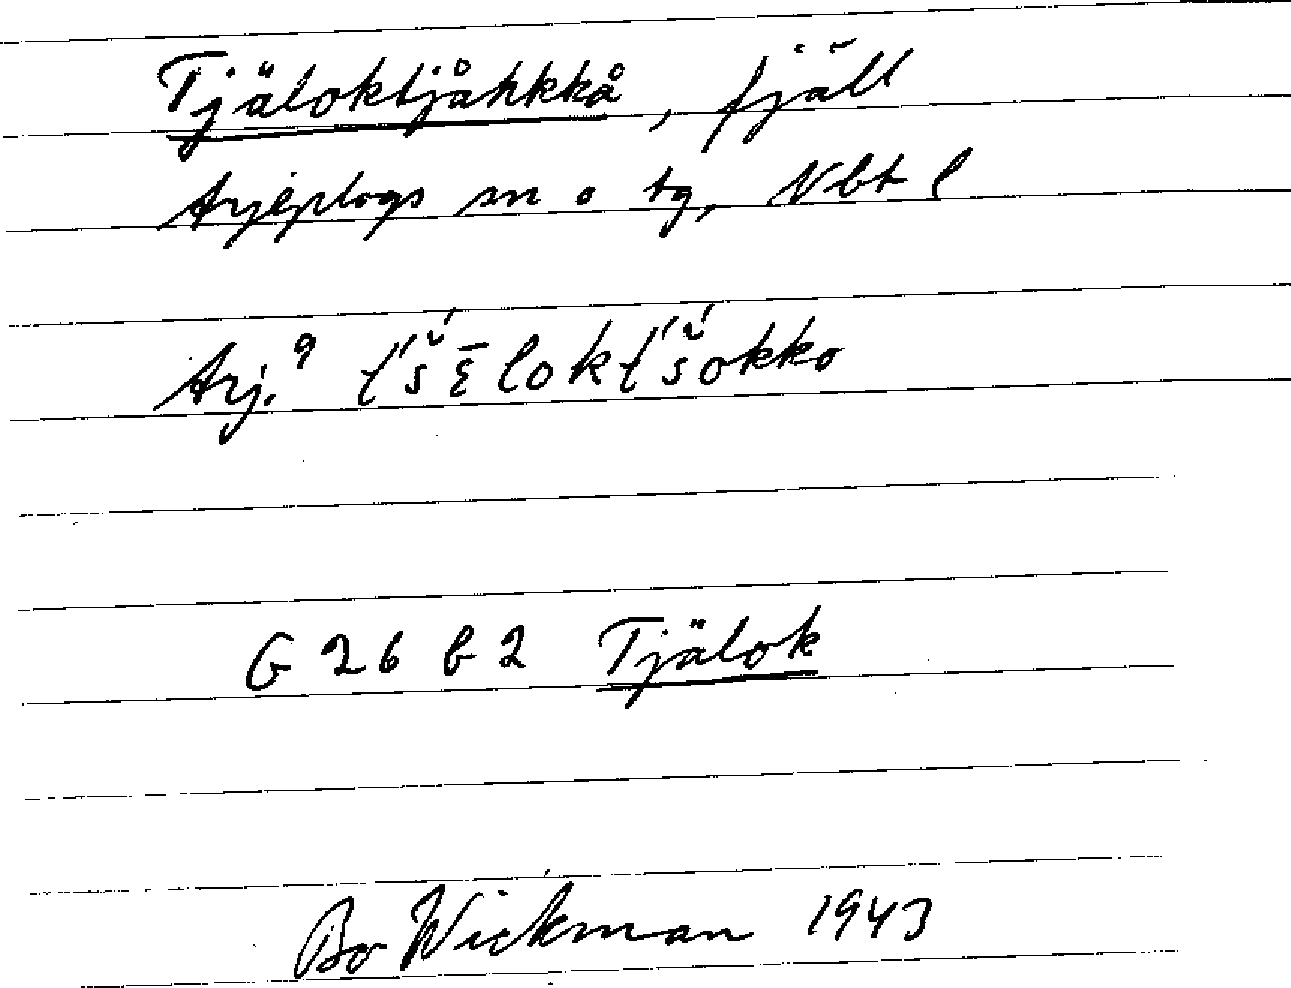 Tjäloktjåhkkå, fjäll
Arjeplogs sn o tg, Vbt l
Arj. 9 t́š́ε̄lokt́š́okko
G 26 b 2 Tjälok
Bo Wickman 1943